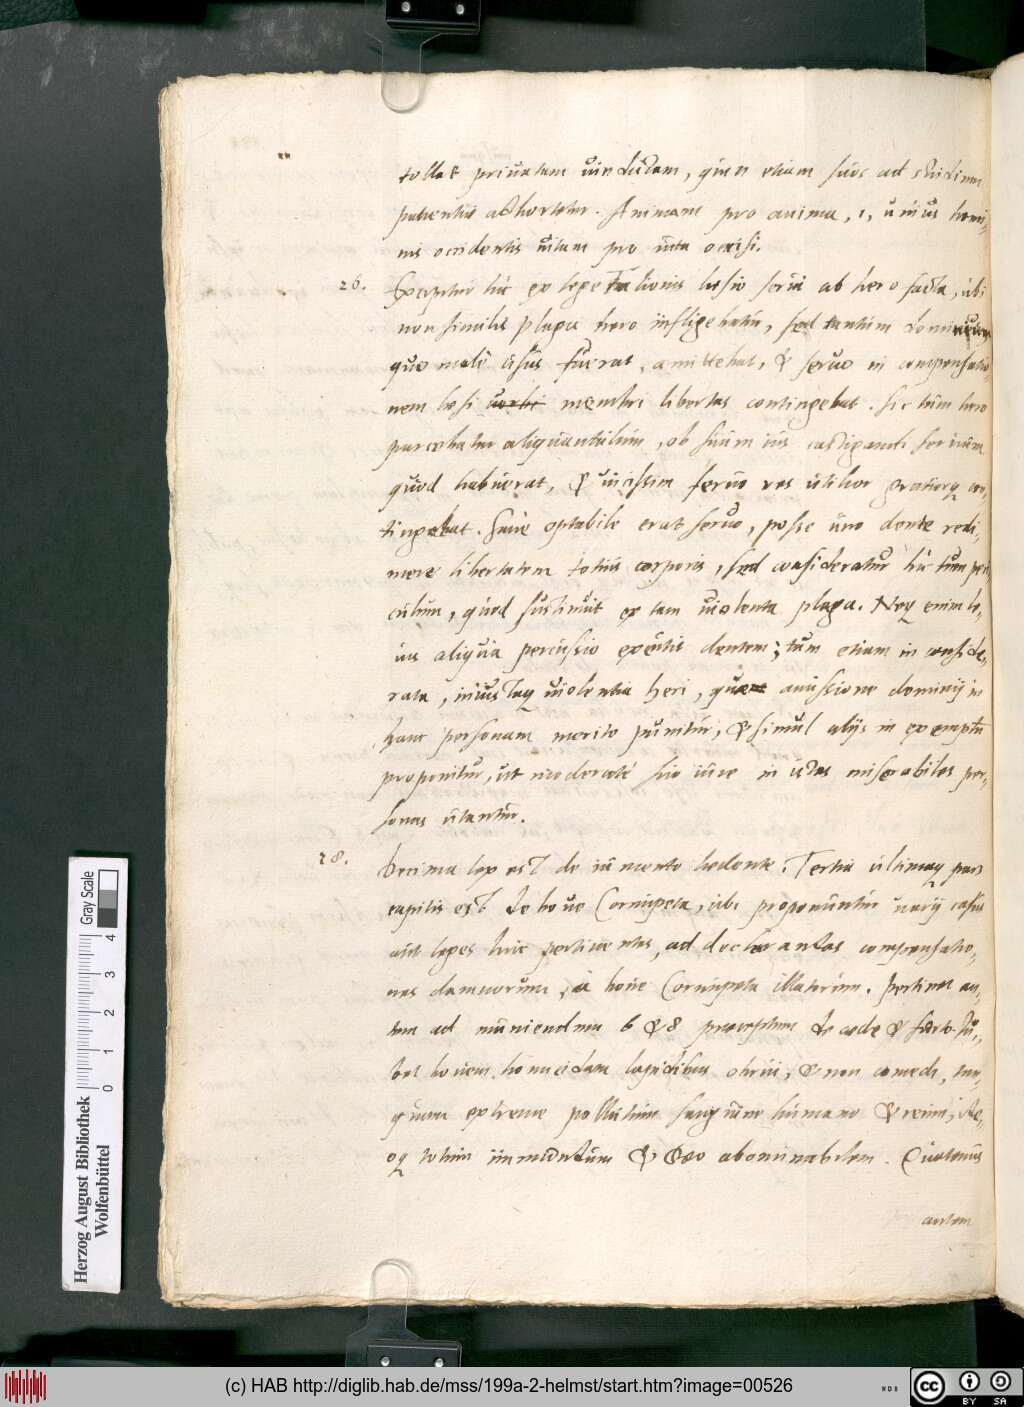 tollat priuatam uindictam, quin etiam suos ad studium
patientiae adhortetur. Animam pro anima, .i. unius homi-
nis occidentis uitam pro uita occisi.
26. Excipitur hic ex lege Talionis laesio serui ab hero facta, ubi
non similis plaga hero infligebatur, sed tantum dominium
quo male usus fuerat, amittebat, & seruo in compensatio-
nem laesi membri libertas contingebat. Sic tum hero
parcebatur aliquantulum, ob suum ius castigandi seruum
quod habuerat, & uicissim seruo res utilior gratiorq con-
tingebat. Sane optabile erat seruo, posse uno dente redi-
mere libertatem totius corporis, sed consideratur hic tum peri
culum, quod sustinuit ex tam uiolenta plaga. Neq enim le-
uis aliqua percussio excutit dentem; tum etiam inconside-
rata, iniustaq uiolentia heri, quae amissione dominij in
hanc personam merito punitur, & simul alijs in exemptu
proponitur, ut moderate suo iure in istas miserabiles per-
sonas utantur.
28. Decima lex est de iumento laedente. Tertia ultimaq pars
capitis est de boue Cornupeta, ubi proponuntur uarij casus
aut leges huc pertinentes, ad declarantas compensatio-
nes damnorum, à boue Cornupeta illatorum. Pertinet au-
tem ad muniendum 6 & 8 praeceptum de caede & furto. Iu-
bet bouem homicidam lapidibus obrui, & non comedi, tan-
quam extreme pollutum sanguine humano & reum, ide-
oq totum immundum & Deo abominabilem. Quatenus
autem
Herzog August Bibliothek
Wolfenbüttel
0 1 2 3 4
Gray Scale
(c) HAB http://diglib.hab.de/mss/199a-2-helmst/start.htm?image=00526
cc BY SA